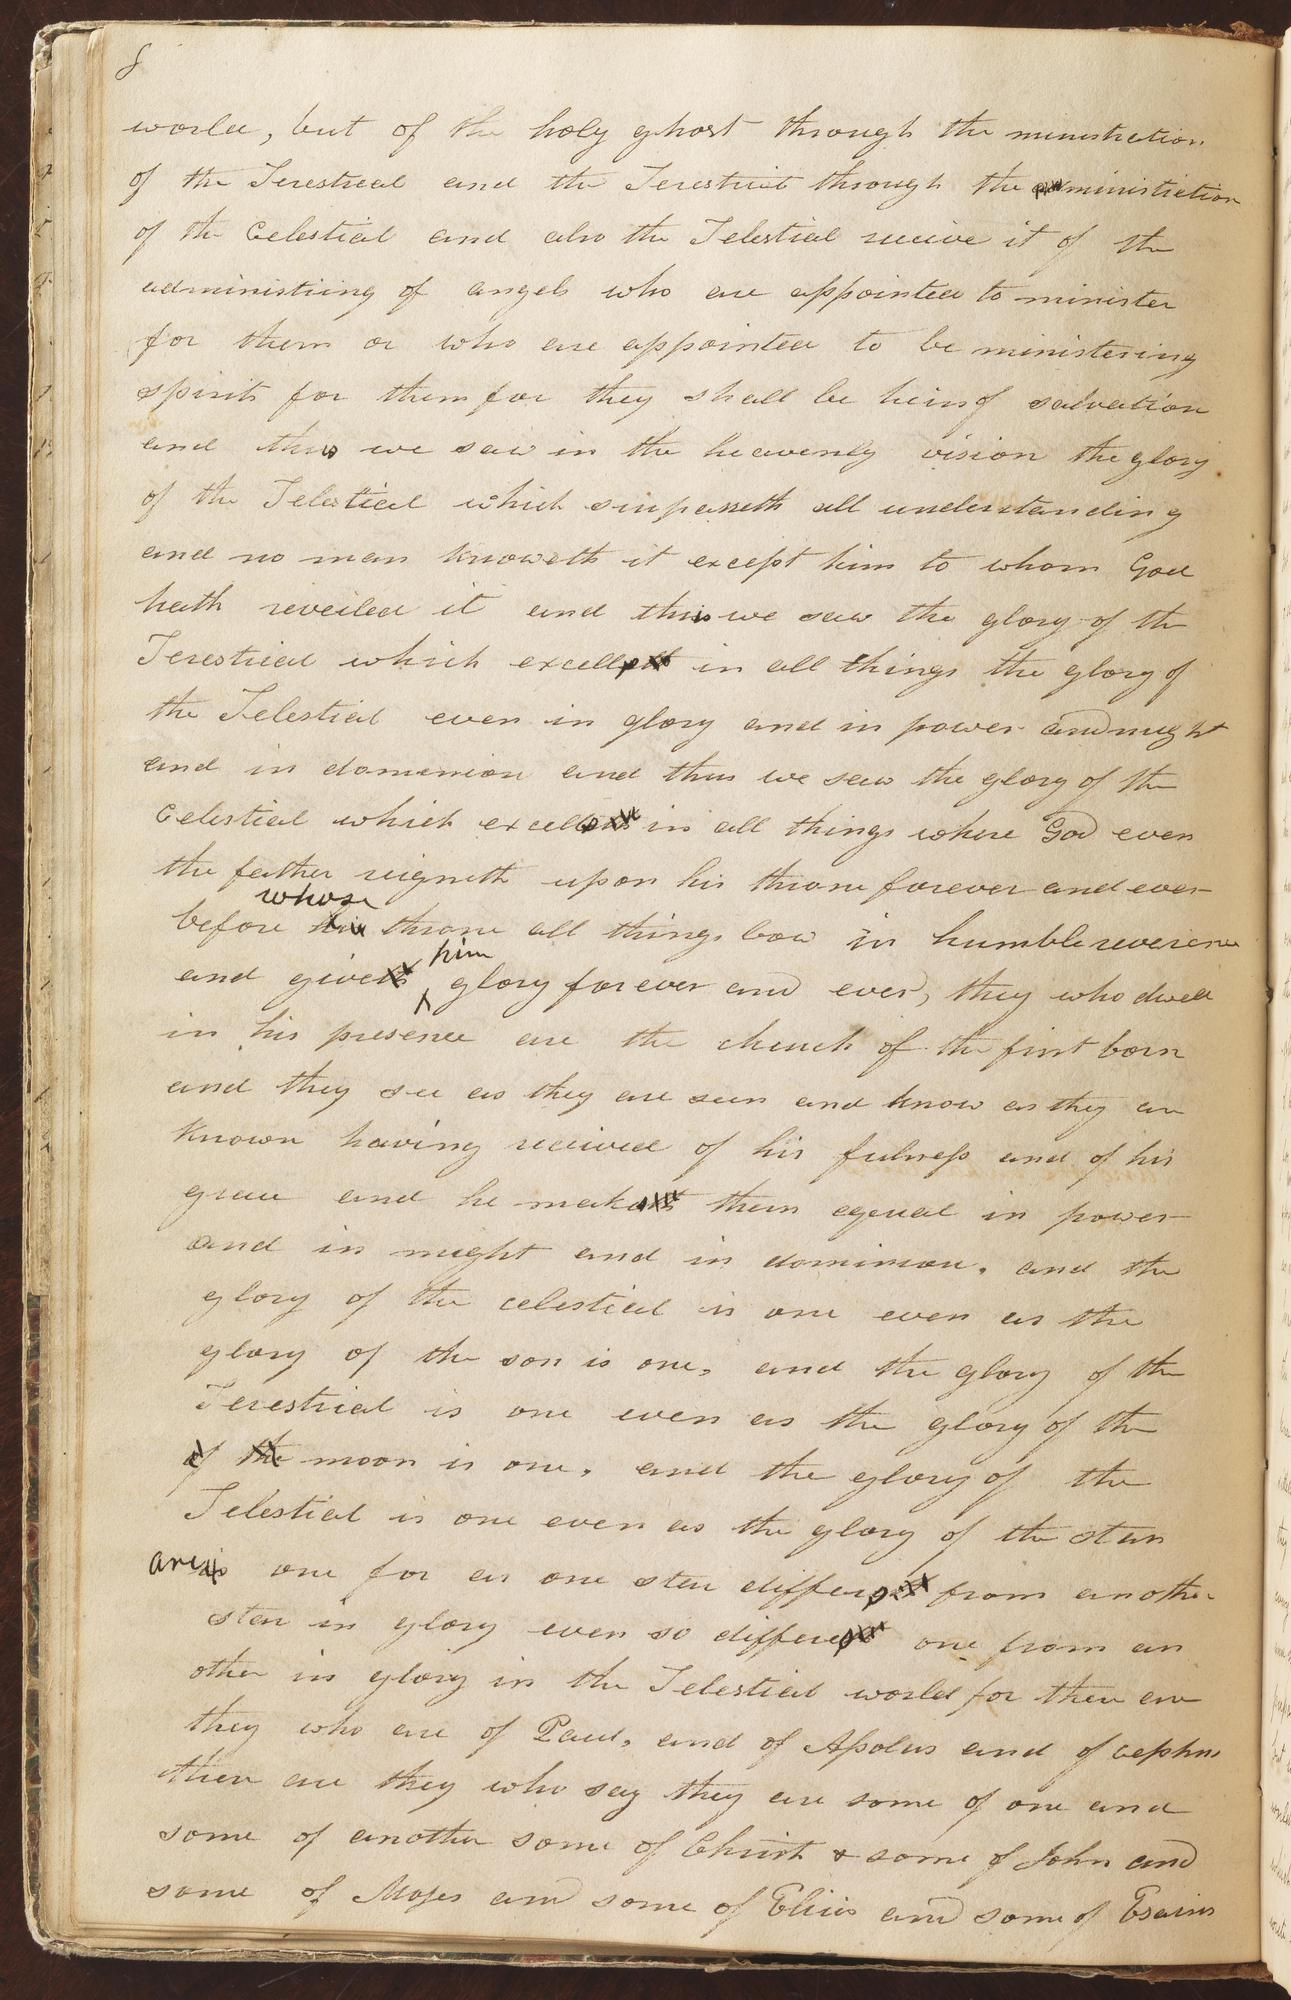 8
world, but of the holy ghost through the ministration
of the Terestrial and the Terestrial through the ministration
of the Celestial and also the Telestial receive it of the
administiring of angels who are appointed to minister
for them or who are appointed to be ministering
spirits for them for they shall be heirs of salvation
and thus we saw in the heavenly vision the glory
of the Telestial which surpasseth all understanding
and no man knoweth it except him to whom God
hath reveiled it and thus we saw the glory of the
Terestrial which excells in all things the glory of
the Telestial even in glory and in power and might
and in domenion and thus we saw the glory of the
Celestial which excells in all things where God even
the father reigneth upon his throne forever and ever
whose
before his throne all things bow in humble reverence
him
and giveth glory forever and ever, they who dwell
in his presence are the church of the first born
and they see as they are seen and know as they are
known having received of his fulness and of his
grace and he makes them equal in power
and in might and in dominion. and the
glory of the celestial is one even as the
glory of the son is one. and the glory of the
Terestrial is one even as the glory of the
of the moon is one. and the glory of the
Telestial is one even as the glory of the stars
are is one for as one star differs from another
star in glory even so differs one from an
other in glory in the Telestial world for these are
they who are of Paul, and of Apolus and of cephus
these are they who say they are some of one and
some of another some of Christ & some of John and
some of Moses and some of Elias and some of Esaias